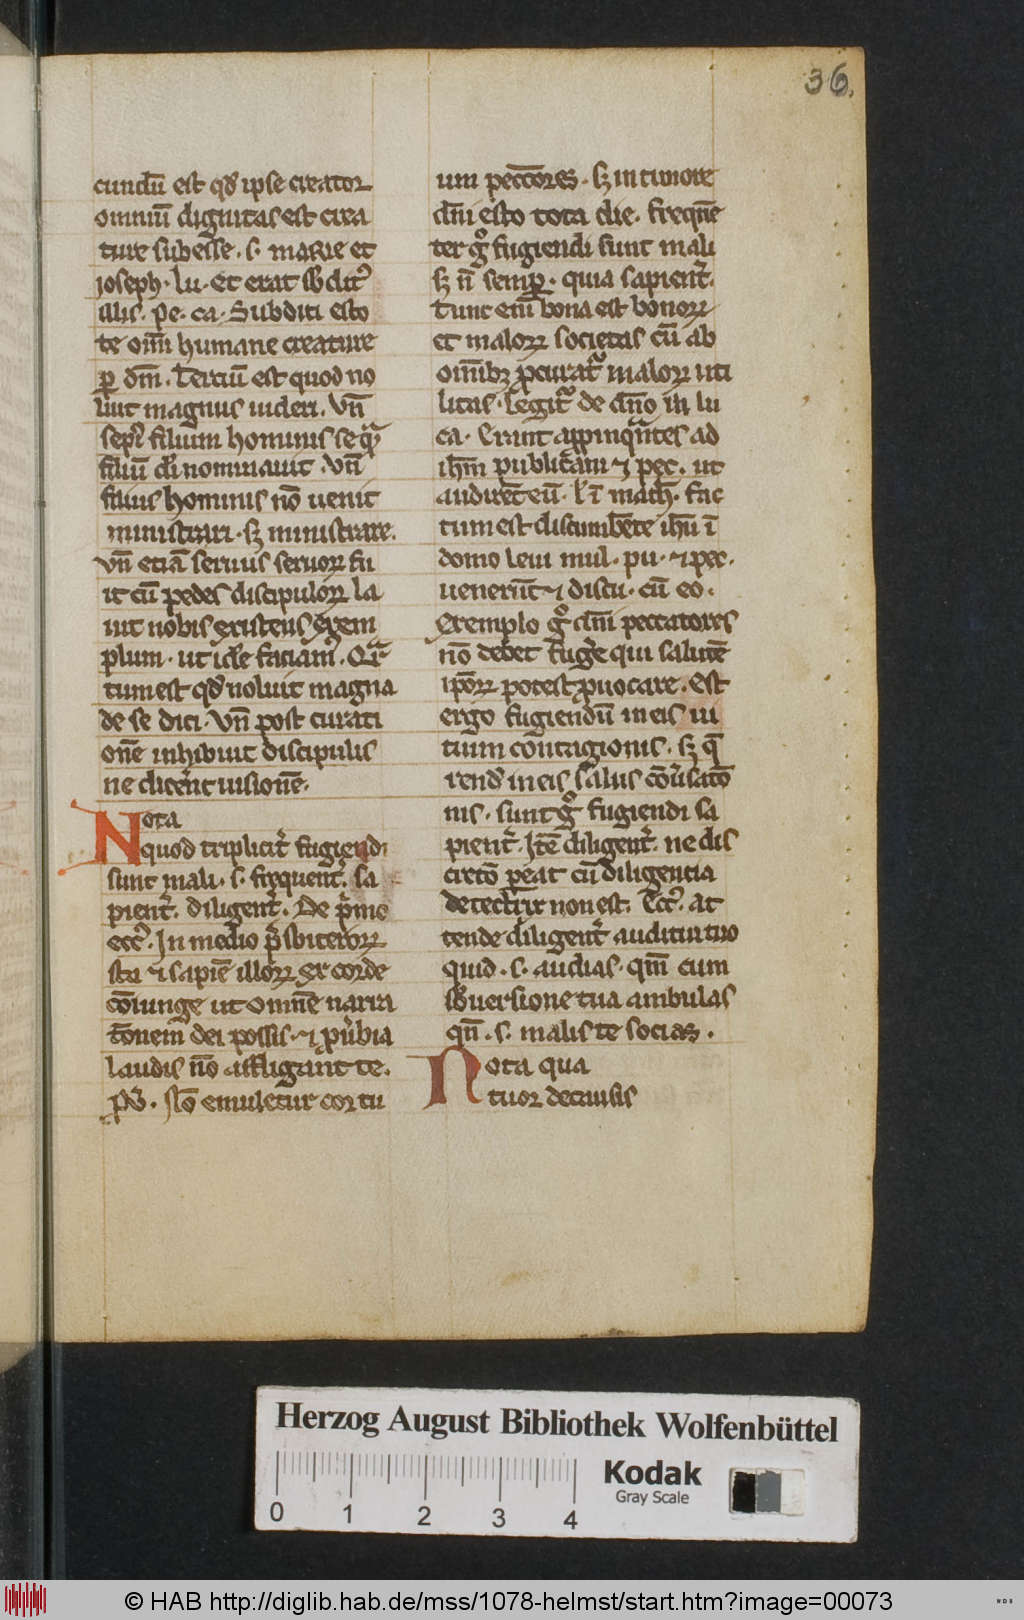 36.
cundū est qđ ipse creator
omniū dignitas est crea
ture subesse . s . marie et
joseph . lu . Et erat sbdit᷒
illis . pe . ca . Subditi esto
te om̄i humane creature
ꝑ dm̄ . Terciū est quod no
luit magnus uideri . Vn̄
sepi᷒ filium hominis se qͣm
filiū di nominauit . Vn̄
filius hominis nō uenit
ministrari . sꝫ ministrare .
Vn̄ etiā seruus seruoꝝ fu
it cū pedes discipuloꝝ la
uit nobis existens exem
plum . ut idē faciam᷒ . Qͣr
tum est qđ noluit magna
de se dici . Vn̄ post curati
onē inhibuit discipulis
ne dicerēt uisionē .
Nota
quod triplicit᷑ fugiendi
sunt mali . s . frequent᷑ . sa
pient᷑ . diligent᷑ . De p̄mo
ecc᷒ . In medio p̄sbiteroꝝ
sta ⁊ sapiē illoꝝ ex corde
cōiunge ut omnē narra
tōnem dei possis . ⁊ ꝓu᷑bia
laudis nō affligant te .
ꝓū . Nō emuletur cor tu
um peccōres . sꝫ in timore
dn̄i esto tota die . freqn̄
ter gͦ fugiendi sunt mali
sꝫ n̄ semꝑ . quia sapient᷑ .
Tunc em̄ bona est bonoꝝ
et maloꝝ societas cū ab
om̄ibꝫ ꝓcurat᷑ maloꝝ uti
litas . Legit᷑ de dn̄o in lu
ca . Erant appinqͣntes ad
ihm̄ publicani ⁊ pec . ut
audirēt eū . Et ī math . fac
tum est discumbēte ihū ī
domo leui mul . pu . ⁊ pec .
uenerūt ⁊ discu . cū eo .
Exemplo gͦ dn̄i peccatores
nō debet fuge᷑ qui salutē
ip̄oꝝ potest ꝓuocare . Est
ergo fugiendū in eis ui
tium contagionis . sꝫ q̄
rend᷒ in eis salus cōu᷑satō
nis . sunt gͦ fugiendi sa
pient᷑ . Itē diligent᷑ . ne dis
cretō pereat cū diligencia
detectrix non est . Ecc᷒ . at
tende diligent᷑ auditui tuo
quid . s . audias . qm̄ cum
sbuersione tua ambulas
qn̄ . s . malis te socias .
Nota qua
tuor de causis
Herzog August Bibliothek Wolfenbüttel
Kodak
Gray Scale
0 1 2 3 4
© HAB http://diglib.hab.de/mss/1078-helmst/start.htm?image=00073